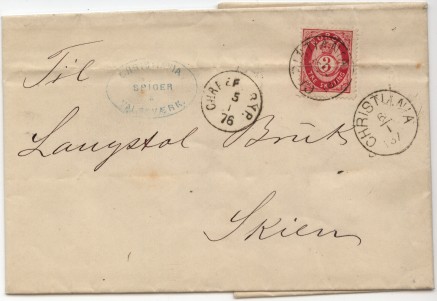 Til
CHRISTIANIA
SPIGER
VALSEVÆRK.
3
5
1
76
EXP.
CHRISTIANIA
Langstol Bruk
Skien